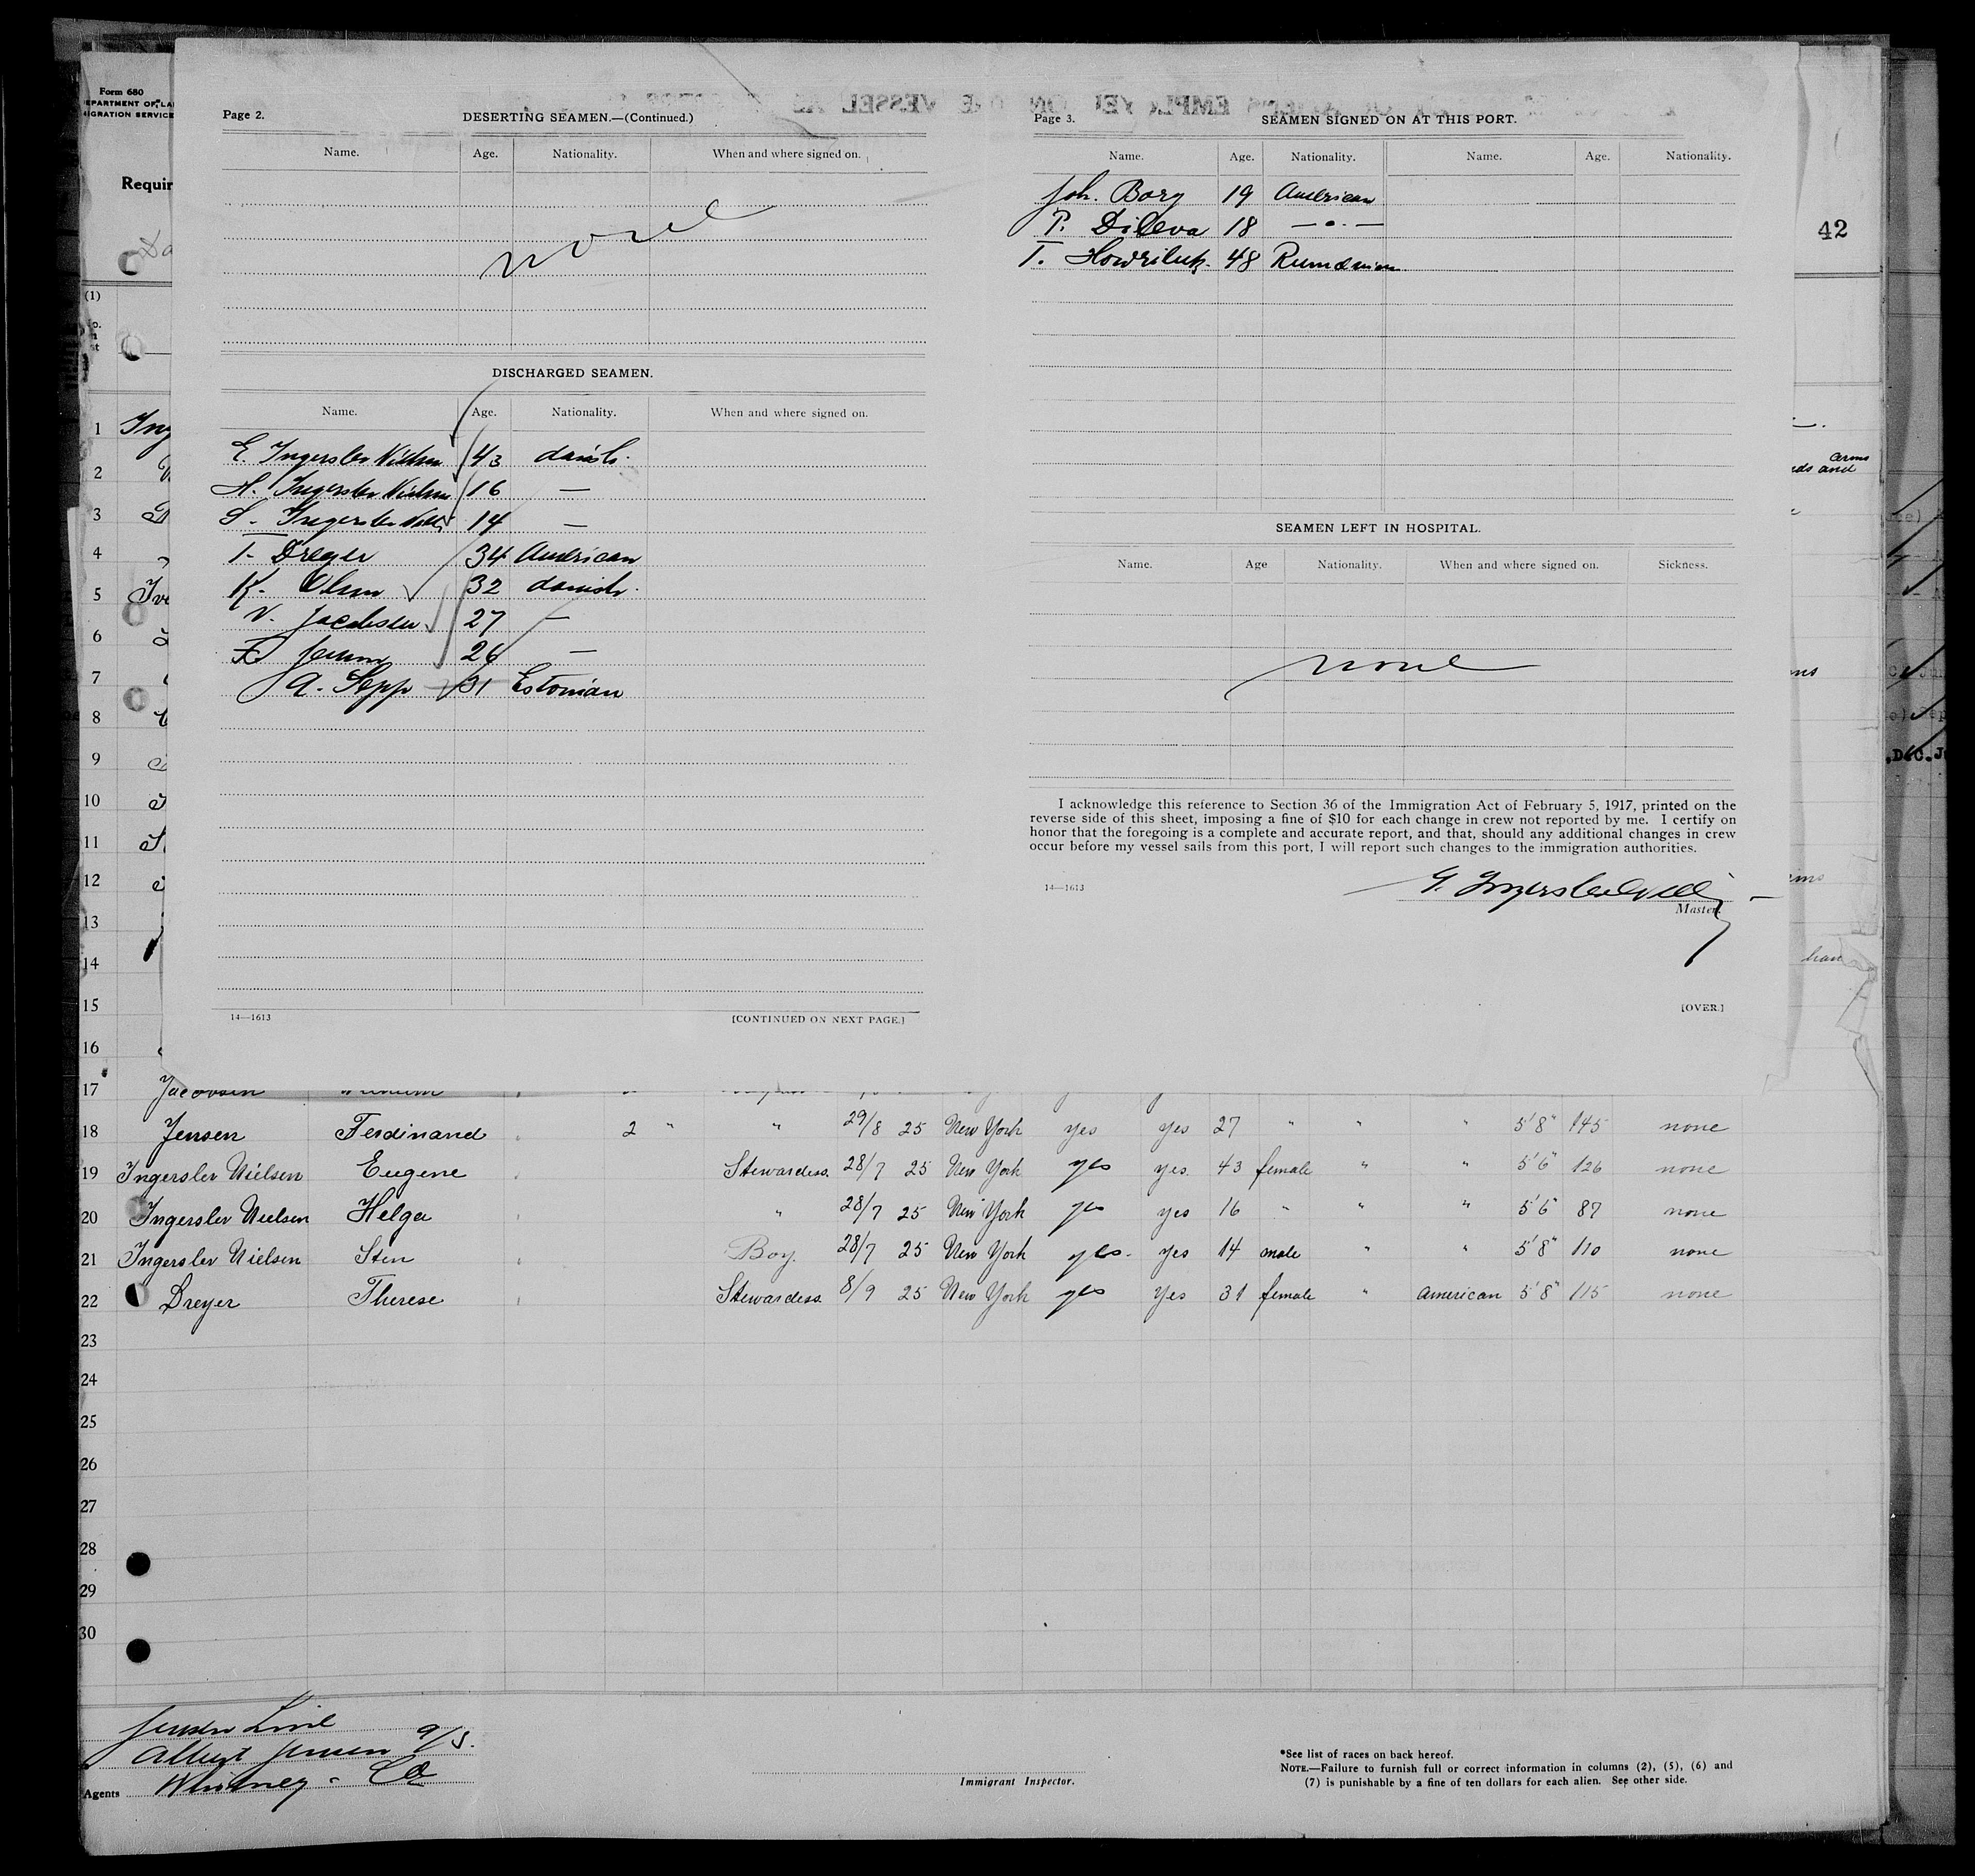 Form 680
Requir
42
Page 2.
DESERTING SEAMEN.—(Continued.)
Name. Age. Nationality. When and where signed on.
none
DISCHARGED SEAMEN.
Name. Age. Nationality. When and where signed on.
E. Ingerslev Nielsen 43 danish.
H. Ingerslev Nielsen 16 —
S. Ingerslev Niels 14 —
T. Dreyer 34 American
K. Olsen 32 danish.
V. Jacobsen 27 —
F. Jensen 26 —
A. Sepp 31 Estonian
14—1613 [CONTINUED ON NEXT PAGE.]
Page 3.
SEAMEN SIGNED ON AT THIS PORT.
Name. Age. Nationality. Name. Age. Nationality.
Joh. Borg 19 American
P. Dileva 18 — " —
T. Howriluk. 48 Rumanian
SEAMEN LEFT IN HOSPITAL.
Name. Age Nationality. When and where signed on. Sickness.
none
I acknowledge this reference to Section 36 of the Immigration Act of February 5, 1917, printed on the
reverse side of this sheet, imposing a fine of $10 for each change in crew not reported by me. I certify on
honor that the foregoing is a complete and accurate report, and that, should any additional changes in crew
occur before my vessel sails from this port, I will report such changes to the immigration authorities.
14—1613
Master.
[OVER.]
1
2
3
4
5
6
7
8
9
10
11
12
13
14
15
16
17 Jacobsen
18 Jensen Ferdinand 2 " " 29/8 25 New York yes yes 27 " " " 5'8" 145 none
19 Ingerslev Nielsen Eugene Stewardess. 28/7 25 New York yes yes. 43 female " " 5'6" 126 none
20 Ingerslev Nielsen Helga " 28/7 25 New York yes yes 16 " " " 5'6 87 none
21 Ingerslev Nielsen Sten Boy. 28/7 25 New York yes. yes 14 male " " 5'8" 110 none
22 Dreyer Therese Stewardess. 8/9 25 New York yes Yes 31 female " American 5'8" 115 none
23
24
25
26
27
28
29
30
Jensen Line
Albert Jensen a/s.
Agents Whitney & Co
Immigrant Inspector.
*See list of races on back hereof.
NOTE.—Failure to furnish full or correct information in columns (2), (5), (6) and
(7) is punishable by a fine of ten dollars for each alien. See other side.